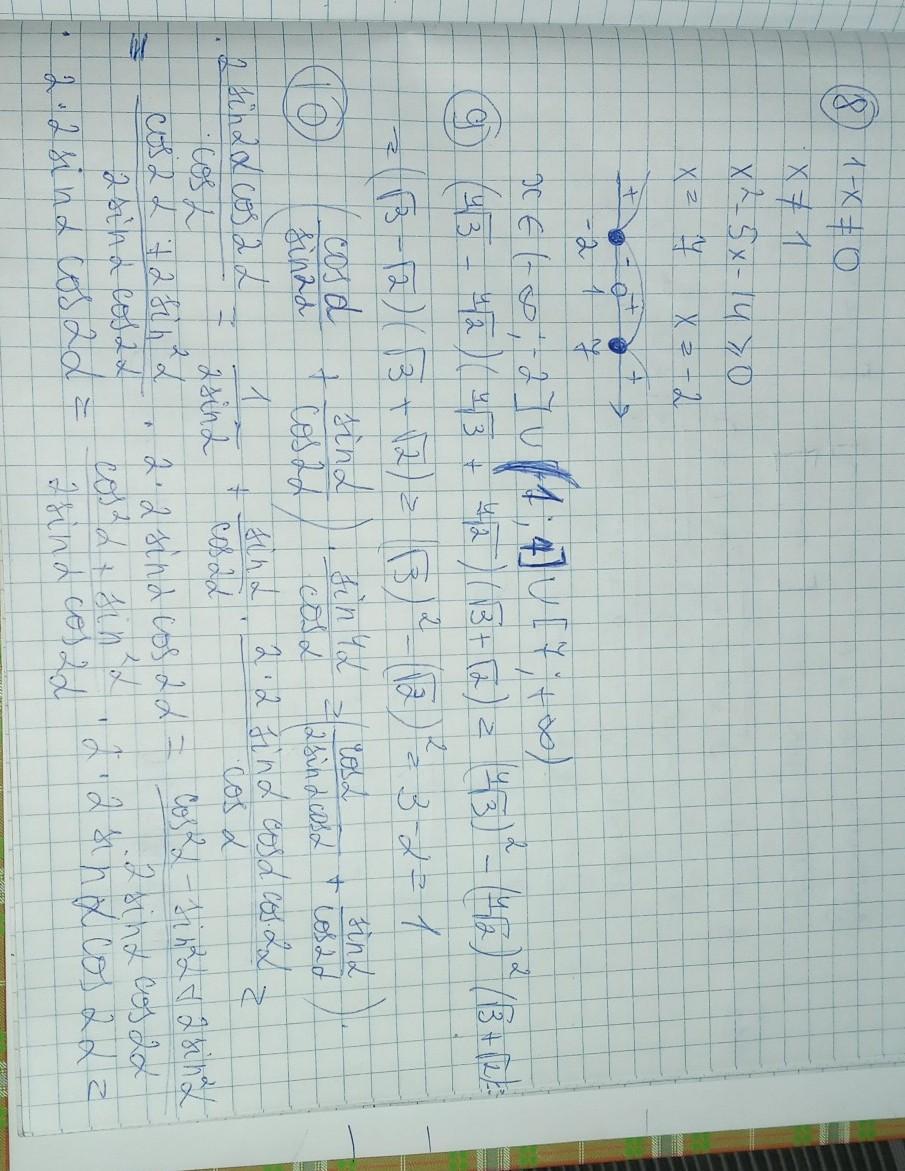 ⑧ 1-x ≠ 0
x ≠ 1
x² - 5x - 14 ≥ 0
x = 7 x = -2
+ - + +
-2 1 7
x ∈ (-∞; -2] ∪ ∪ [7; +∞)
⑨ (⁴√3 - ⁴√2)(⁴√3 + ⁴√2)(√3 + √2) = (⁴√3)² - (⁴√2)² (√3 + √2) =
= (√3 - √2)(√3 + √2) = (√3)² - (√2)² = 3 - 2 = 1
⑩ (cosα/sin2α + sinα/cos2α) · sin4α/cosα = (cosα/2sinαcosα + sinα/cos2α) ·
· 2sin2αcos2α/cosα = 1/2sinα + sinα/cos2α · 2·2sinαcosαcos2α/cosα =
= cos2α + 2sin²α/2sinαcos2α · 2·2sinαcos2α = cos²α - sin²α + 2sin²α/2sinαcos2α ·
· 2·2sinαcos2α = cos²α + sin²α/2sinαcos2α · 2·2sinαcos2α =